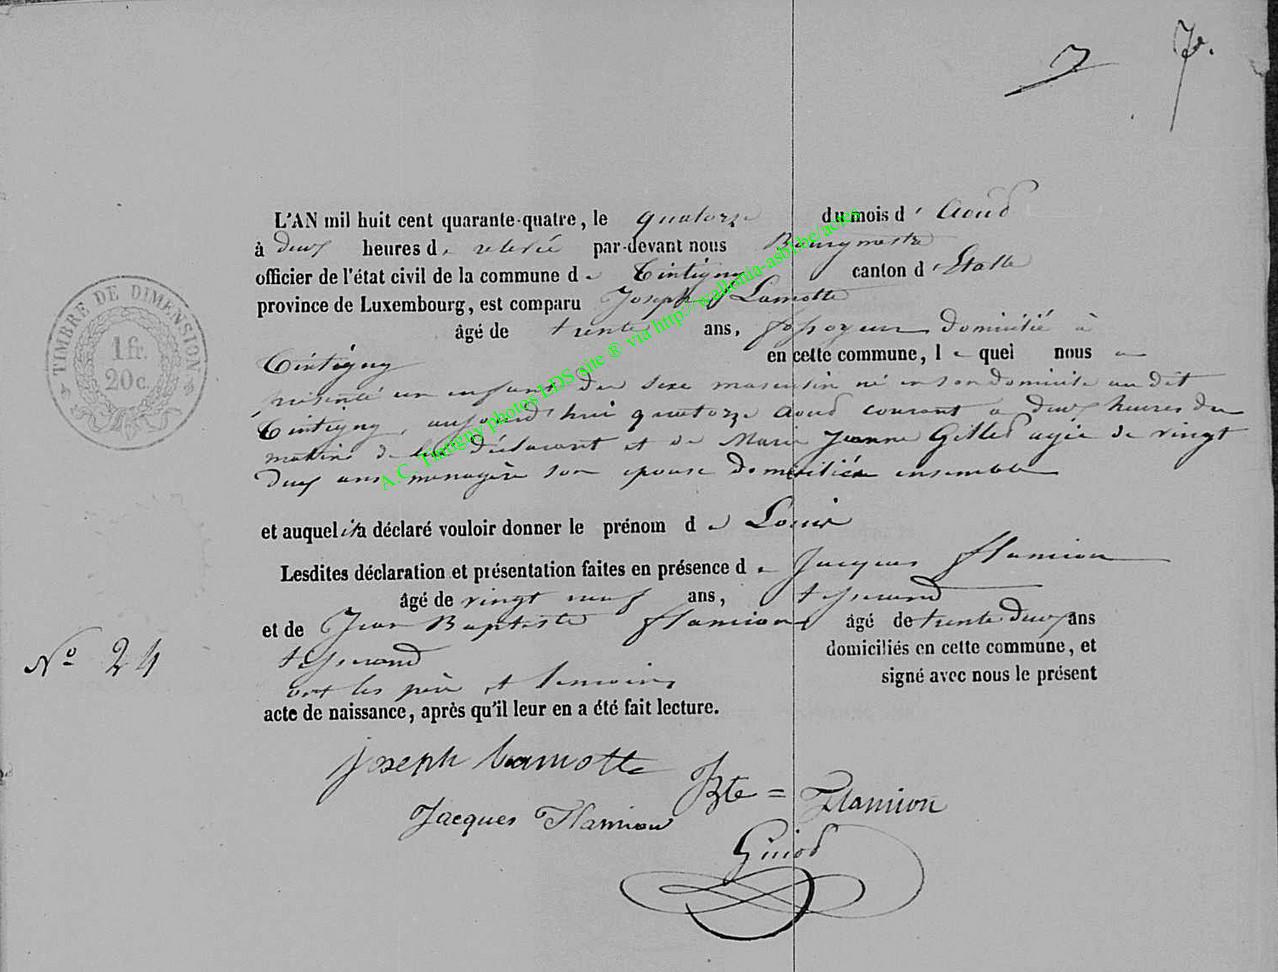 7 7e.
L'AN mil huit cent quarante-quatre, le quatorze du mois d' Aoud
à deux heures de relevée par-devant nous Bourgmestre
officier de l'état civil de la commune de Tintigny canton d'Etalle
province de Luxembourg, est comparu Joseph Lamotte
âgé de trente ans, domicilié à
Tintigny en cette commune, lequel nous a
présenté un enfant du sexe masculin né en son domicile au dit
Tintigny, aujourd'hui quatorze Aoud courant à deux heures du
matin de lui déclarant et de Marie Jeanne Gilles agée de vingt
deux ans menagère son epouse domiciliée ensemble
et auquel il a déclaré vouloir donner le prénom de Louis
Lesdites déclaration et présentation faites en présence de Jacques Flamion
âgé de vingt neuf ans, tisserand
et de Jean Baptiste Flamion âgé de trente deux ans
tisserand domiciliés en cette commune, et
ont les père et temoins signé avec nous le présent
acte de naissance, après qu'il leur en a été fait lecture.
Joseph Lamotte
Jacques Flamion Bte = Flamion
Guiod
No 24
TIMBRE DE DIMENSION
1 fr.
20 c.
A.C. Tintigny photos LDS site ® via http://wallonia-asbl.be/actes